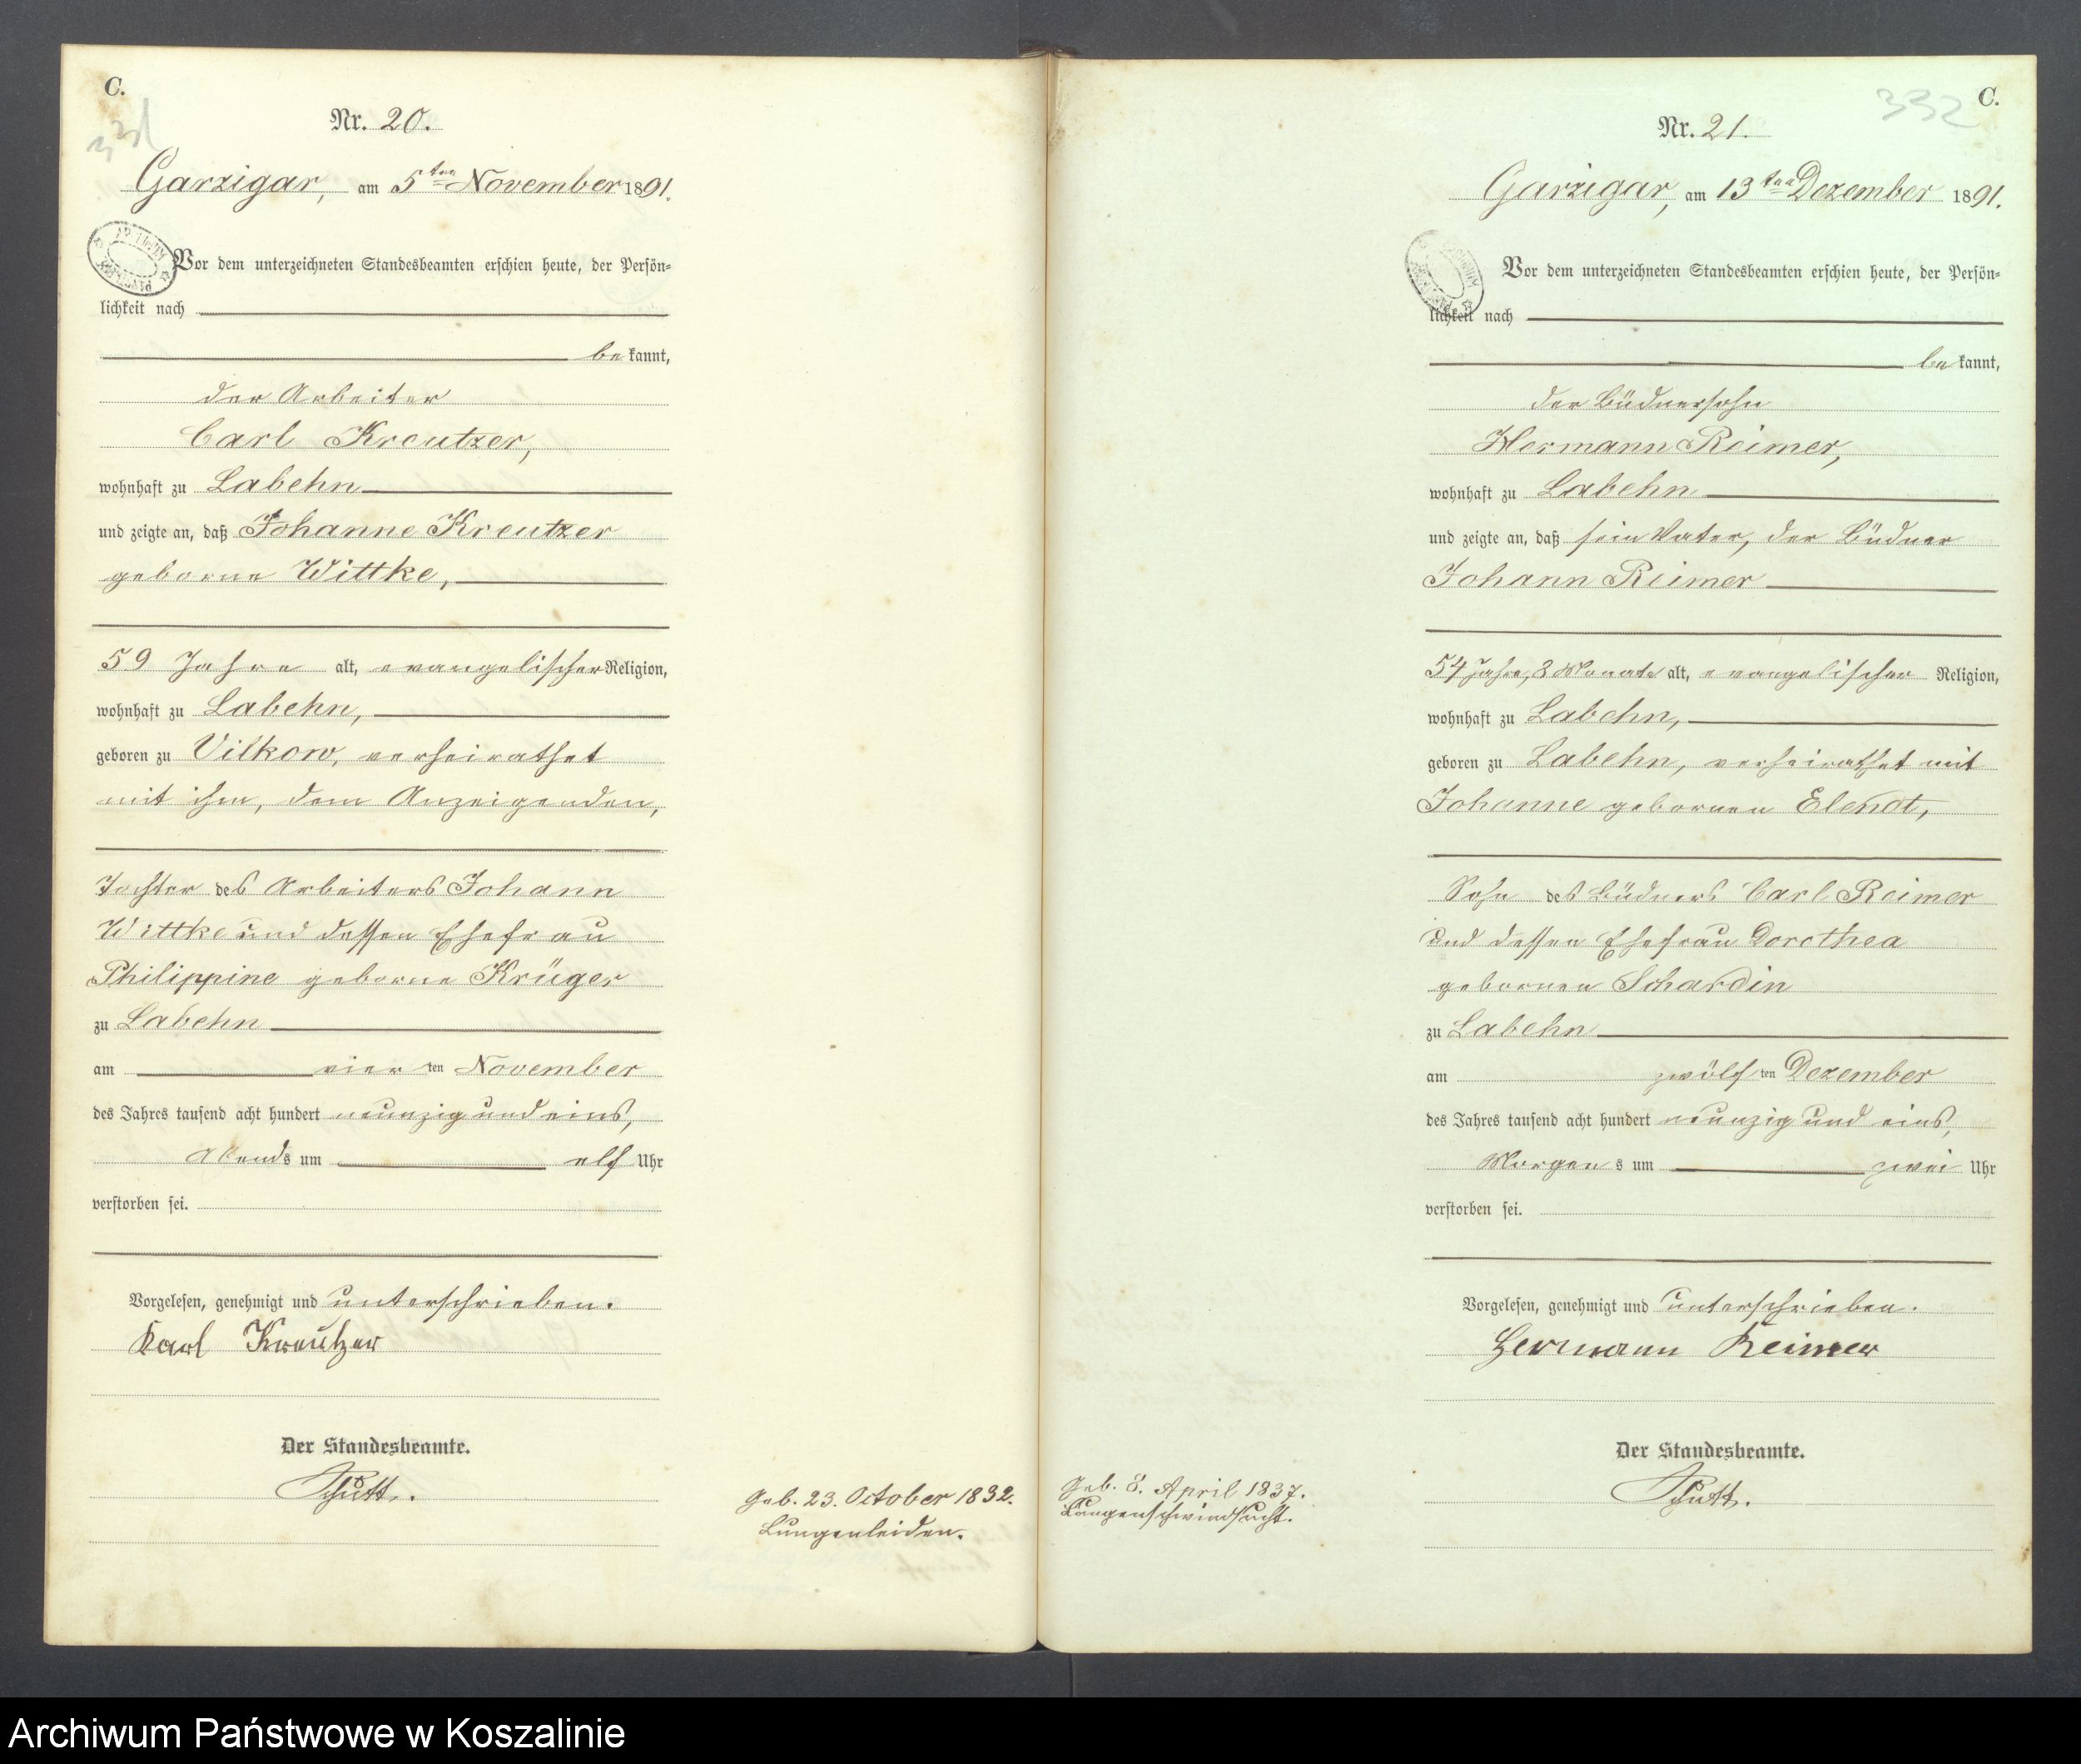 C.
Nr. 20.
Garzigar, am 5ten November 1891.
Vor dem unterzeichneten Standesbeamten erschien heute, der Persön=
lichkeit nach
bekannt,
der Arbeiter
Carl Kreutzer,
wohnhaft zu Labehn
und zeigte an, daß Johanne Kreutzer
geborne Wittke,
59 Jahre alt, evangelischer Religion,
wohnhaft zu Labehn,
geboren zu Vilkow, verheirathet
mit ihm, dem Anzeigenden,
Tochter des Arbeiters Johann
Wittke und dessen Ehefrau
Philippine geborne Krüger
zu Labehn
am vierten November
des Jahres tausend acht hundert neunzig und eins,
Abends um elf Uhr
verstorben sei.
Vorgelesen, genehmigt und unterschrieben.
Karl Kreutzer
Der Standesbeamte.
Schütt.
Geb. 23. October 1832.
Lungenleiden.
332 C.
Nr. 21.
Garzigar, am 13ten Dezember 1891.
Vor dem unterzeichneten Standesbeamten erschien heute, der Persön=
lichkeit nach
bekannt,
der Büdnersohn
Hermann Reimer,
wohnhaft zu Labehn
und zeigte an, daß sein Vater, der Büdner
Johann Reimer
54 Jahre, 8 Monate alt, evangelischer Religion,
wohnhaft zu Labehn,
geboren zu Labehn, verheirathet mit
Johanne gebornen Elendt,
Sohn des Büdners Carl Reimer
und dessen Ehefrau Dorothea
gebornen Schardin
zu Labehn
am zwölften Dezember
des Jahres tausend acht hundert neunzig und eins,
Morgens um zwei Uhr
verstorben sei.
Vorgelesen, genehmigt und unterschrieben.
Hermann Reimer
Der Standesbeamte.
Schütt.
Geb. 8. April 1837.
Lungenschwindsucht.
Archiwum Państwowe w Koszalinie